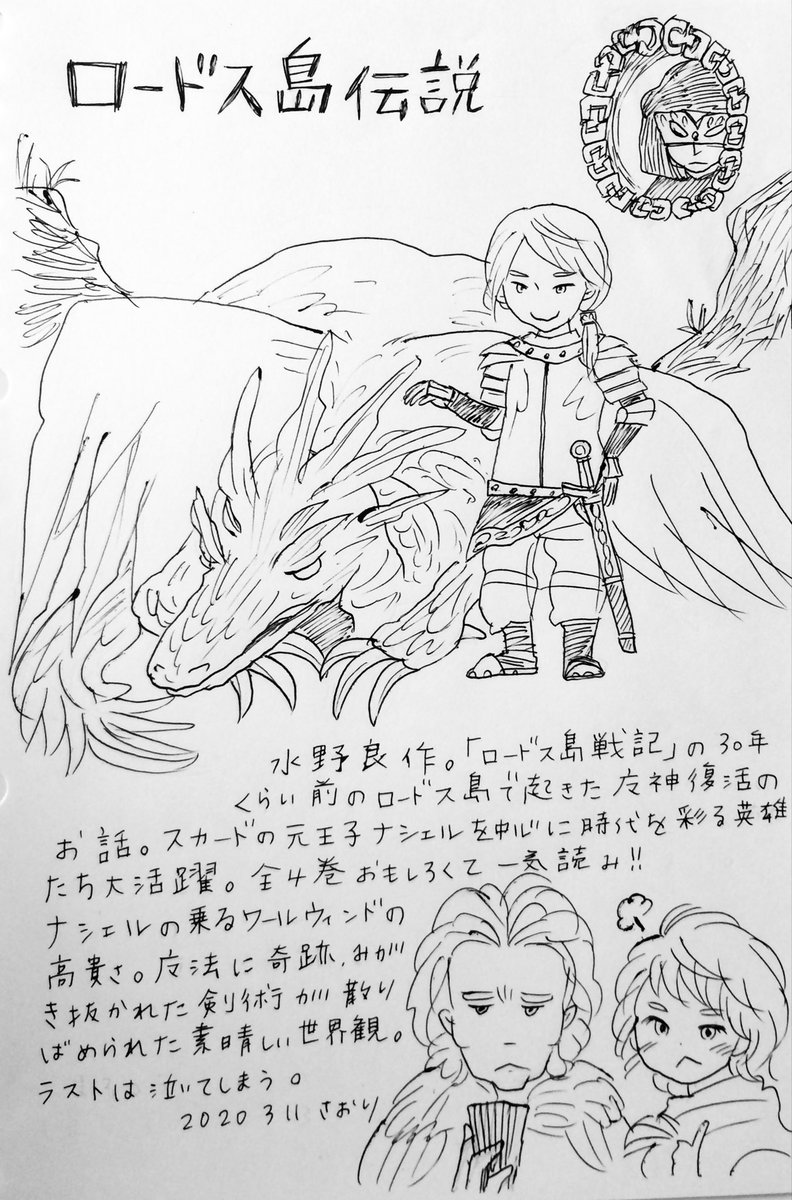 ロードス島伝説
水野良作。「ロードス島戦記」の30年
くらい前のロードス島で起きた広神復活の
お話。スカードの元王子ナシェルを中心に時代を彩る英雄
たち大活躍。全4巻おもしろくて一気読み!!
ナシェルの乗るワールウィンドの
高貴さ。広法に奇跡、みが
き抜かれた剣術が散り
ばめられた素晴しい世界観。
ラストは泣いてしまう。
2020 3 11 さおり